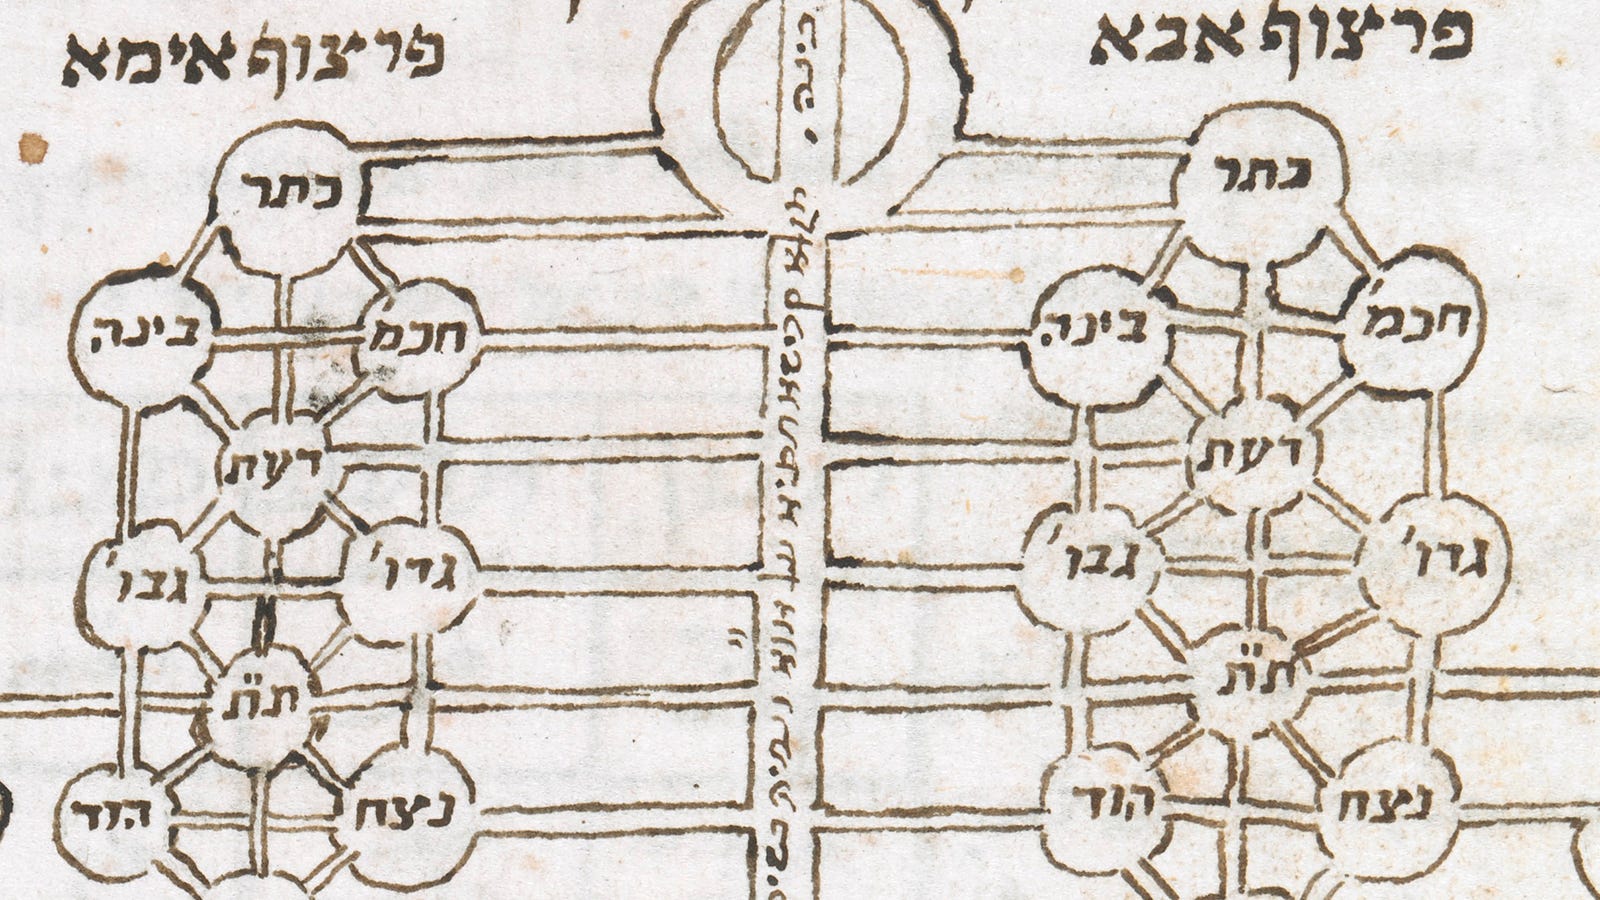 פרצוף אבא
פרצוף אימא
בינה
כתר
חכמ'
בינה
דעת
גדו'
גבו'
ת"ת
נצח
הוד
כתר
חכמ'
בינה
דעת
גדו'
גבו'
ת"ת
נצח
הוד